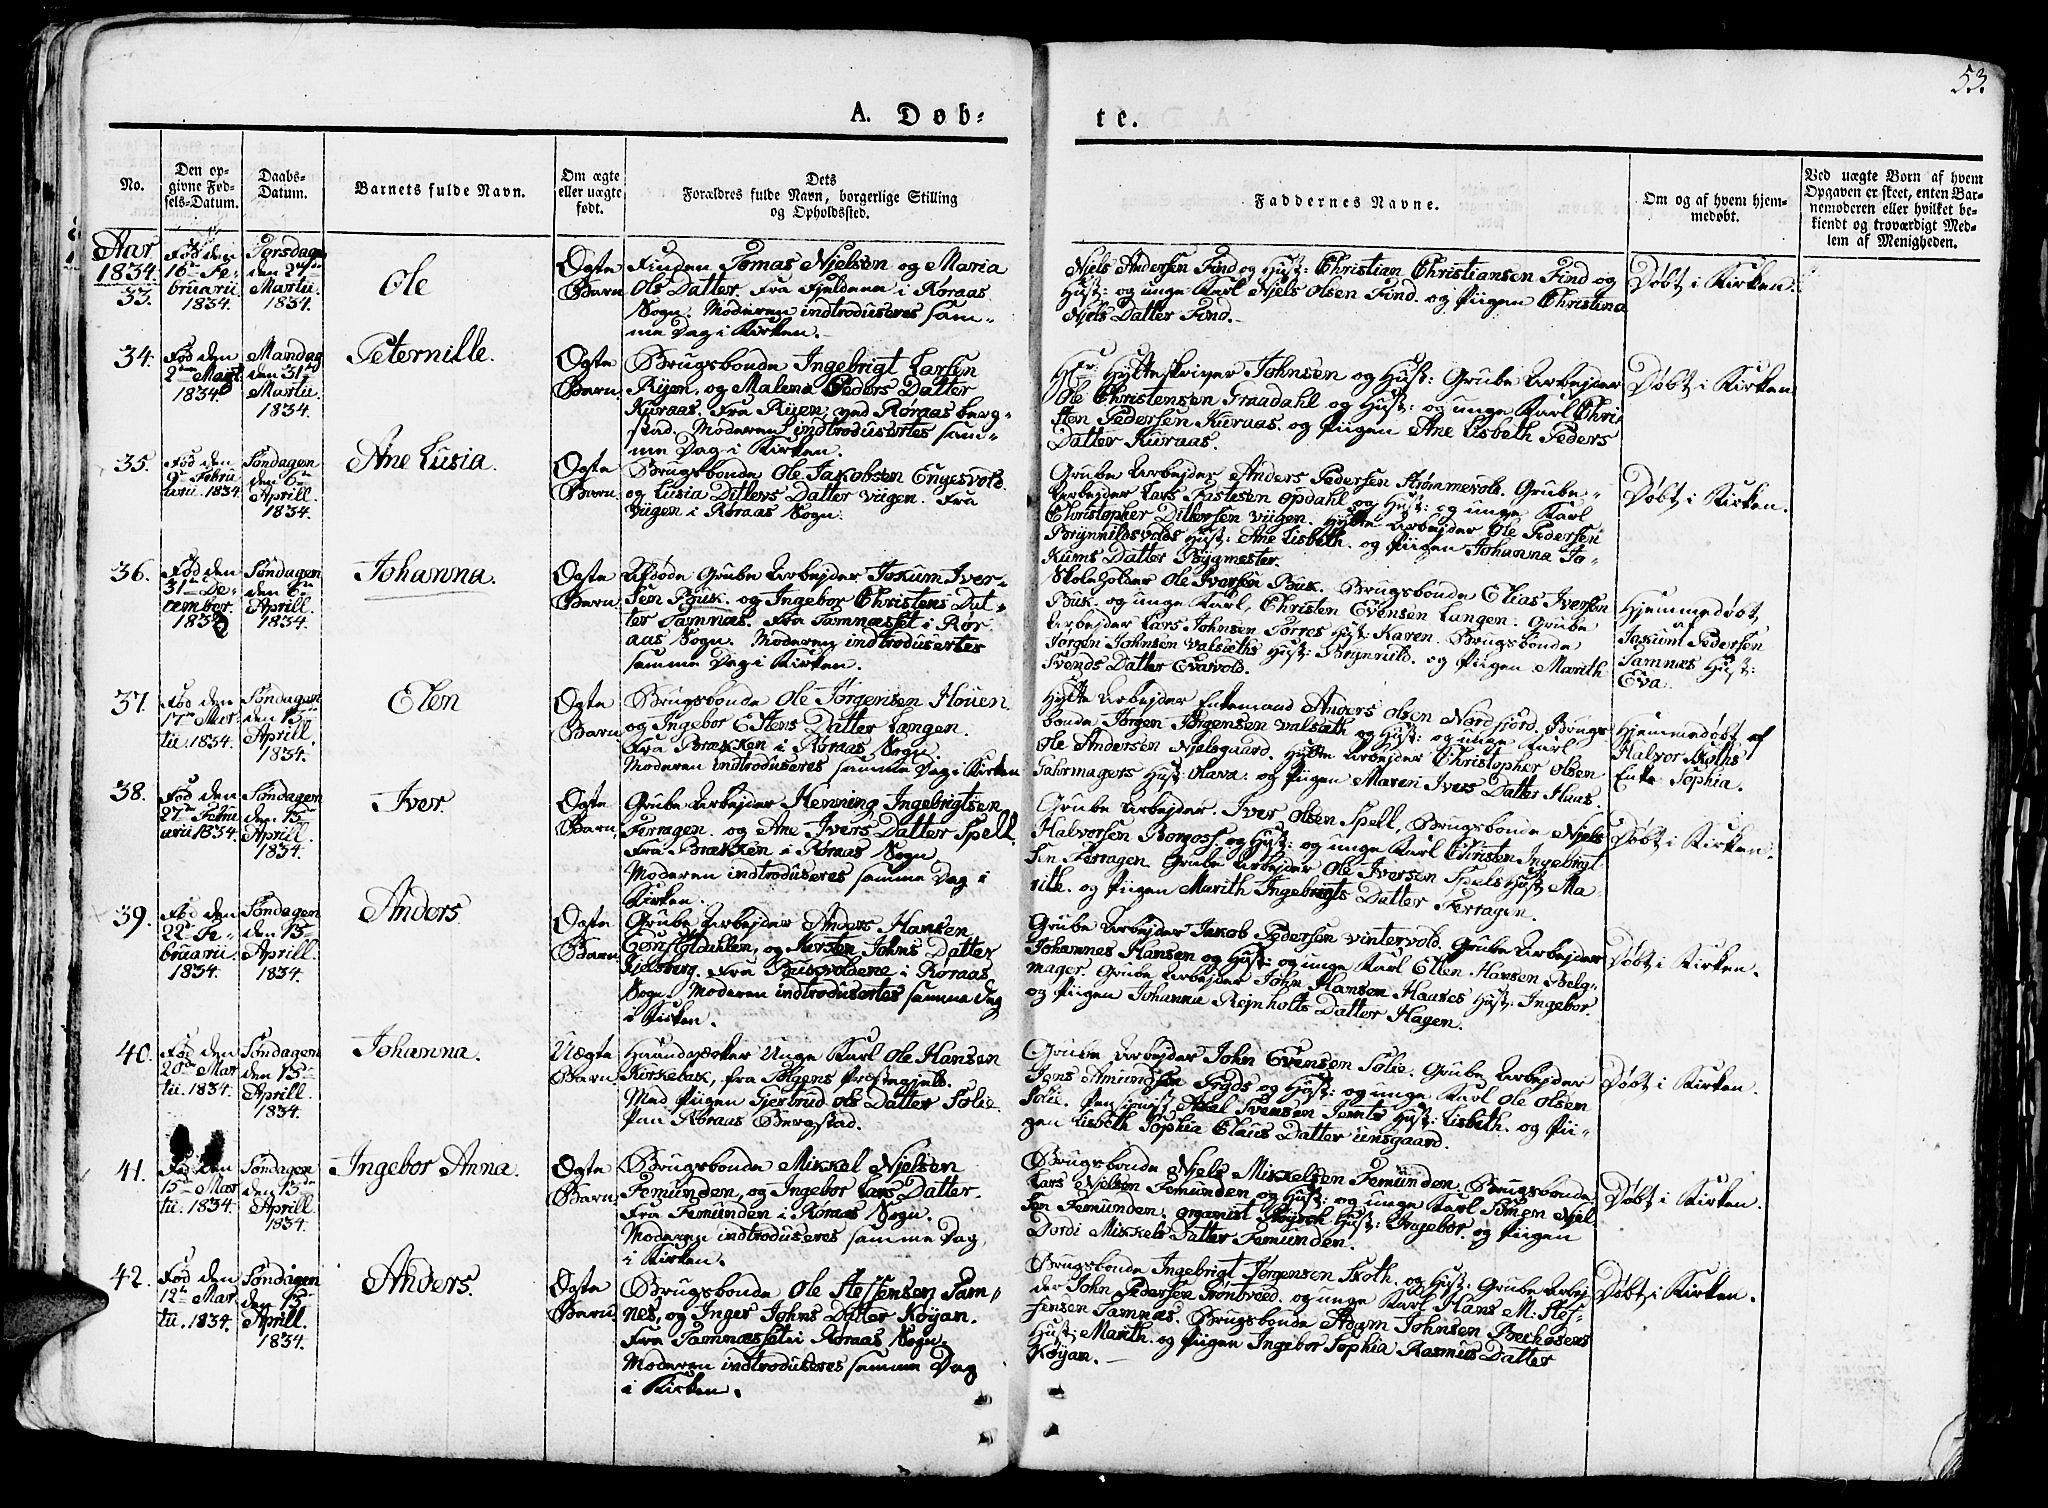 53.
A. Døb-
te.
No.
Den op-
givne Fød-
sels-Datum.
Daabs-
Datum.
Barnets fulde Navn.
Om ægte
eller uægte
født.
Dets
Forældres fulde Navn, borgerlige Stilling
og Opholdssted.
Faddernes Navne.
Om og af hvem hjem-
medøbt.
Ved uægte Born af hvem
Opgaven er skeet, enten Bar-
nemoderen eller hvilket be-
kiendt og troværdigt Med-
lem af Menigheden.
Aar
1834.
33.
Fød den
16de Fe-
bruarii
1834.
Torsdagen
den 27de
Martii
1834.
Ole
Ægte
Barn
Finden Tomas Njelsen og Maria
Ols Datter fra Fjeldene i Røraas
Sogn. Moderen indtroduseres sam-
me Dag i Kirken.
Njels Andersen Find og Hust: Christian Christiansen Find og
Hust: og unge Karl Njels Olsen Find. og Piigen Christina
Njels Datter Find.
Døbt i Kirken.
34.
Fød den
2den Marti
1834
Mandag
den 31te
Martii
1834.
Peternille.
Ægte
Barn
Brugsbonde Ingebrigt Larsen
Ryen. og Malena Peders Datter
Kuraas. Fra Ryen, ved Røraas berg-
stad. Moderen indtrodusertes sam-
me Dag i Kirken.
Hr: Hytteskriver Johnsen og Hust: Grube Arbejder
Ole Christensen Graadahl og Hust: og unge Karl Chri
sten Pedersen Kuraas. og Piigen Ane Lisbeth Peders
Datter Kuraas.
Døbt i Kirken
35.
Fød den
9de Febru
arii. 1834.
Søndagen
den 6te
Aprill
1834.
Ane Lusia.
Ægte
Barn.
Brugsbonde Ole Jakobsen Engesvold.
og Lusia Ditlevs Datter Viigen. Fra
Viigen i Røraas Sogn.
Grube Arbejder Anders Pedersen Strømmevold. Grube-
Arbejder Lars Opdahl og Hust: og unge Karl
Christopher Ditlevsen Viigen. Hytte Arbejder Ole Pedersen
Brynnildsvolds Hust: Ane Lisbeth. og Piigen Johanna Jo-
kums Datter Bygmester.
Døbt i Kirken.
36.
Fød den
31te De-
cember.
1833
Søndagen
den 6te
Aprill
1834.
Johanna.
Ægte
Barn.
Afdøde Grube Arbejder Jokum Iver-
sen Buk. og Ingebor Christens Dat-
ter Tamnæs. Fra Tamnæsset i Rør-
aas Sogn. Moderen indtrodusertes
samme Dag i Kirken.
Skoleholder Ole Iversen Buk. Brugsbonde Elias Iversen
Buk. og unge Karl, Christen Evensen Langen. Grube
Arbejder Lars Johnsen Torres Hust: Karen. Brugsbonde
Jørgen Johnsen Valsæths Hust: Brynnild. og Piigen Marith
Svends Datter Evavold.
Hjemmedøbt
af
Jokum Pedersen
Tamnæs Hust:
Eva.
37.
Fød den
17de Mar
tii. 1834.
Søndagen
den 13de
Aprill.
1834.
Elen
Ægte
Barn.
Brugsbonde Ole Jørgensen Houen.
og Ingebor Estens Datter Langen.
Fra Brækken i Røraas Sogn.
Moderen indtroduseres samme Dag i Kirken.
Hytte Arbejder Enkemand Anders Olsen Nordfjord. Brugs
bonde Jørgen Jørgensen Valsæth og Hust: og unge Karl
Ole Andersen Njelsgaard. Hytte Arbejder Christopher Olsen
Hust: Olava. og Piigen Maren Ivers Datter Haas.
Hjemmedøbt af
Halvor Skoths
Enke Sophia.
38.
Fød den
27de Febru
arii 1834.
Søndagen
den 13de
Aprill.
1834.
Iver.
Ægte
Barn.
Grube Arbejder Henning Ingebrigtsen
Ferragen. og Ane Ivers Datter Spell.
Fra Brækken i Røraas Sogn.
Moderen indtroduseres samme Dag i
Kirken.
Grube Arbejder. Iver Olsen Spell, Brugsbonde Njels
Halvorsen Borgos. og Hust: og unge Karl Christen Ingebrigt
sen Ferragen. Grube Arbejder Ole Iversen Spels Hust: Ma-
rith. og Piigen Marith Ingebrigts Datter Ferragen.
Døbt i Kirken.
39.
Fød den
22de Fe-
bruarii
1834.
Søndagen
den 13de
Aprill
1834.
Anders.
Ægte
Barn.
Grube Arbejder Anders Hansen
og Kersten Johns Datter
Kjølsberg. Fra Buskvoldene i Røraas
Sogn. Moderen indtrodusertes samme Dag
i Kirken.
Grube Arbejder Jakob Pedersen Vintervold. Grube Arbejder
Johannes Hansen og Hust: og unge Karl Ellen Hansen Belg-
mager. Grube Arbejder John Hansen Haases Hust: Ingebor.
og Piigen Johanna Rejnholts Datter Hagen.
Døbt i Kirken.
40.
Fød den
20de Mar
tii. 1834.
Søndagen
den 13de
Aprill.
1834.
Johanna.
Uægte
Barn.
Haandværker Unge Karl Ole Hansen
Kirkebak, fra Tolgens Præstegjeld.
Med Piigen Gjertrud Ols Datter Solie.
Paa Røraas Bergstad.
Grube Arbejder John Evensen Solie. Grube Arbejder
Jens Amundsen Tryds og Hust: og unge Karl Ole Olsen
Solie. Pensionist Axel Svensen Jemts Hust: Lisbeth. og Pii-
gen Lisbeth Sophia Claus Datter Unsgaard.
Døbt i Kirken.
41.
Fød den
15de Mar
tii. 1834.
Søndagen
den 13de
Aprill.
1834.
Ingebor Anna.
Ægte
Barn.
Brugsbonde Mikkel Njelsen
Femunden, og Ingebor Lars Datter.
Fra Femunden i Røraas Sogn.
Moderen indtroduseres samme Dag
i Kirken.
Brugsbonde Njels Mikkelsen Femünden. Brugsbonde
Lars Njelsen Femunden og Hust: og unge Karl Simen Njel
sen Femunden. Organist Hust: Ingebor. og Piigen
Dordi Mikkels Datter Femunden.
Døbt i Kirken.
42.
Fød den
12te Mar
tii. 1834.
Søndagen
den 13de
Aprill
1834.
Anders.
Ægte
Barn.
Brugsbonde Ole Steffensen Tam-
nes, og Inger Johns Datter Køyan.
Fra Tamnæsset i Røraas Sogn.
Moderen indtroduseres samme Dag
i Kirken.
Brugsbonde Ingebrigt Jørgensen Skoth. og Hust: Grube Arbej-
der John Pedersen Trøntveed. og unge Karl Hans M. Stef-
fensen Tamnæs. Brugsbonde Adam Johnsen Bechosens
Hust: Marith. og Piigen Ingebor Sophia Rasmus Datter
Køyan.
Døbt i Kirken.